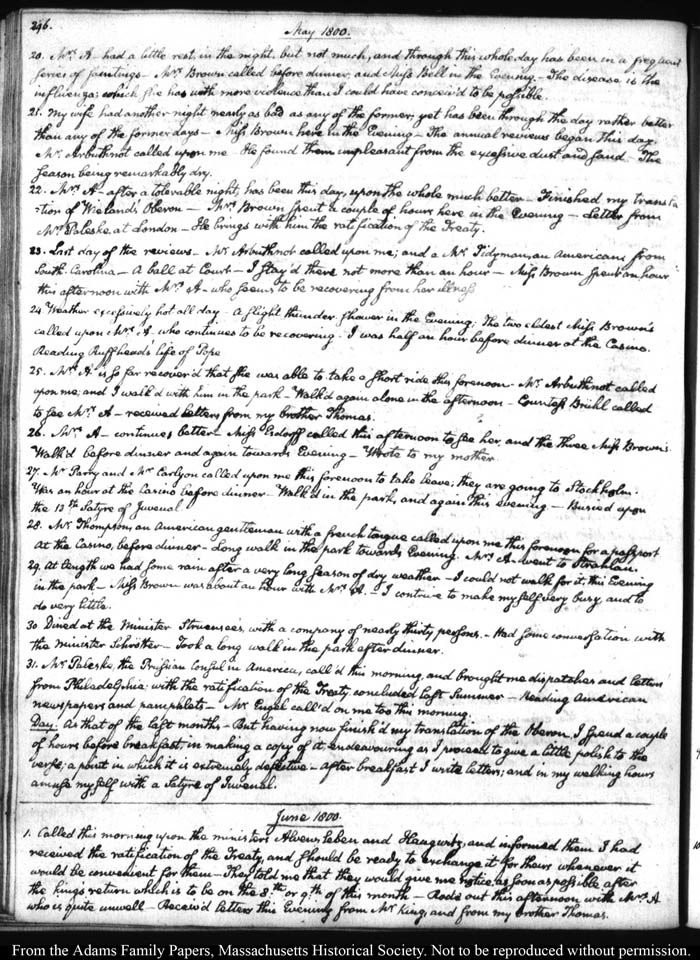 296.
May 1800.
20. Mrs. A– had a little rest, in the night, but not much, and through this whole day has been in a frequent
series of faintings – Mrs. Brown called before dinner, and Miss Bell in the Evening. – The disease is the
influenza: which she has with more violence than I could have conceiv'd to be possible.
21. My wife had another night nearly as bad as any of the former; yet has been through the day rather better
than any of the former days – Miss Brown here in the Evening – The annual reviews began this day.
Mr. Arbuthnot called upon me – He found them unpleasant from the excessive dust and sand – The
season being remarkably dry.
22. Mrs. A– after a tolerable night, has been this day, upon the whole much better – Finished my transla
-tion of Wieland's Oberon – Mrs. Brown spent a couple of hours here in the Evening – Letter from
Mr. Poleske at London – He brings with him the ratification of the Treaty.
23. Last day of the reviews – Mr. Arbuthnot called upon me; and a Mr. Tidyman, an American from
South Carolina – A ball at Court – I stay'd there not more than an hour – Miss Brown spent an hour
this afternoon with Mrs. A– who seems to be recovering from her illness
24. Weather excessively hot all day – A slight thunder shower in the Evening; The two eldest Miss Brown's
called upon Mrs. A. who continues to be recovering – I was half an hour before dinner at the Casino.
Reading Ruffhead's life of Pope
25. Mrs. A is so far recover'd that she was able to take a short ride this forenoon – Mr. Arbuthnot called
upon me; and I walk'd with him in the park – Walk'd again alone in the afternoon – Countess Bruhl called
to see Mrs. A – received letters from my brother Thomas.
26. Mrs. A– continues better – Miss Esdorff called this afternoon to see her, and the three Miss Brown's
Walk'd before dinner and again towards Evening – Wrote to my mother.
27. Mr. Parry and Mr. Carlyon called upon me this forenoon to take leave; they are going to Stockholm.
Was an hour at the Casino before dinner – Walk'd in the park, and again this evening – Busied upon
the 13th Satyre of Juvenal
28. Mr. Thompson, an American gentleman with a french tongue called upon me this forenoon for a passport
At the Casino, before dinner – Long walk in the park towards Evening. Mrs. A– went to Stralau.
29. At length we had some rain after a very long season of dry weather – I could not walk for it, this Evening
in the park – Miss Brown was about an hour with Mrs. A. – I continue to make myself very busy, and to
do very little.
30. Dined at the Minister Struensee's, with a company of nearly thirty persons. – Had some conversation with
the Minister Schrötter – Took a long walk in the park after dinner.
31. Mr. Poleske, the Prussian Consul in America, call'd this morning, and brought me dispatches and letters
from Philadelphia; with the ratification of the Treaty, concluded last Summer – Reading American
newspapers and pamphlets – Mr. Engel call'd on me too this morning.
Day. As that of the last months – But having now finish'd my translation of the Oberon, I spend a couple
of hours before breakfast, in making a copy of it, endeavouring as I proceed to give a little polish to the
verse; a point in which it is extremely defective – After breakfast I write letters; and in my walking hours
amuse myself with a Satyre of Juvenal.
June 1800.
1. Called this morning upon the ministers Alvensleben and Haugwitz, and informed them I had
received the ratification of the Treaty, and should be ready to exchange it for theirs whenever it
would be convenient for them – They told me that they would give me notice, as soon as possible after
the king's return which is to be on the 8th or 9th of this month – Rode out this afternoon with Mrs. A
who is quite unwell – Receiv'd letters this Evening from Mr. King, and from my brother Thomas.
From the Adams Family Papers, Massachusetts Historical Society. Not to be reproduced without permission.